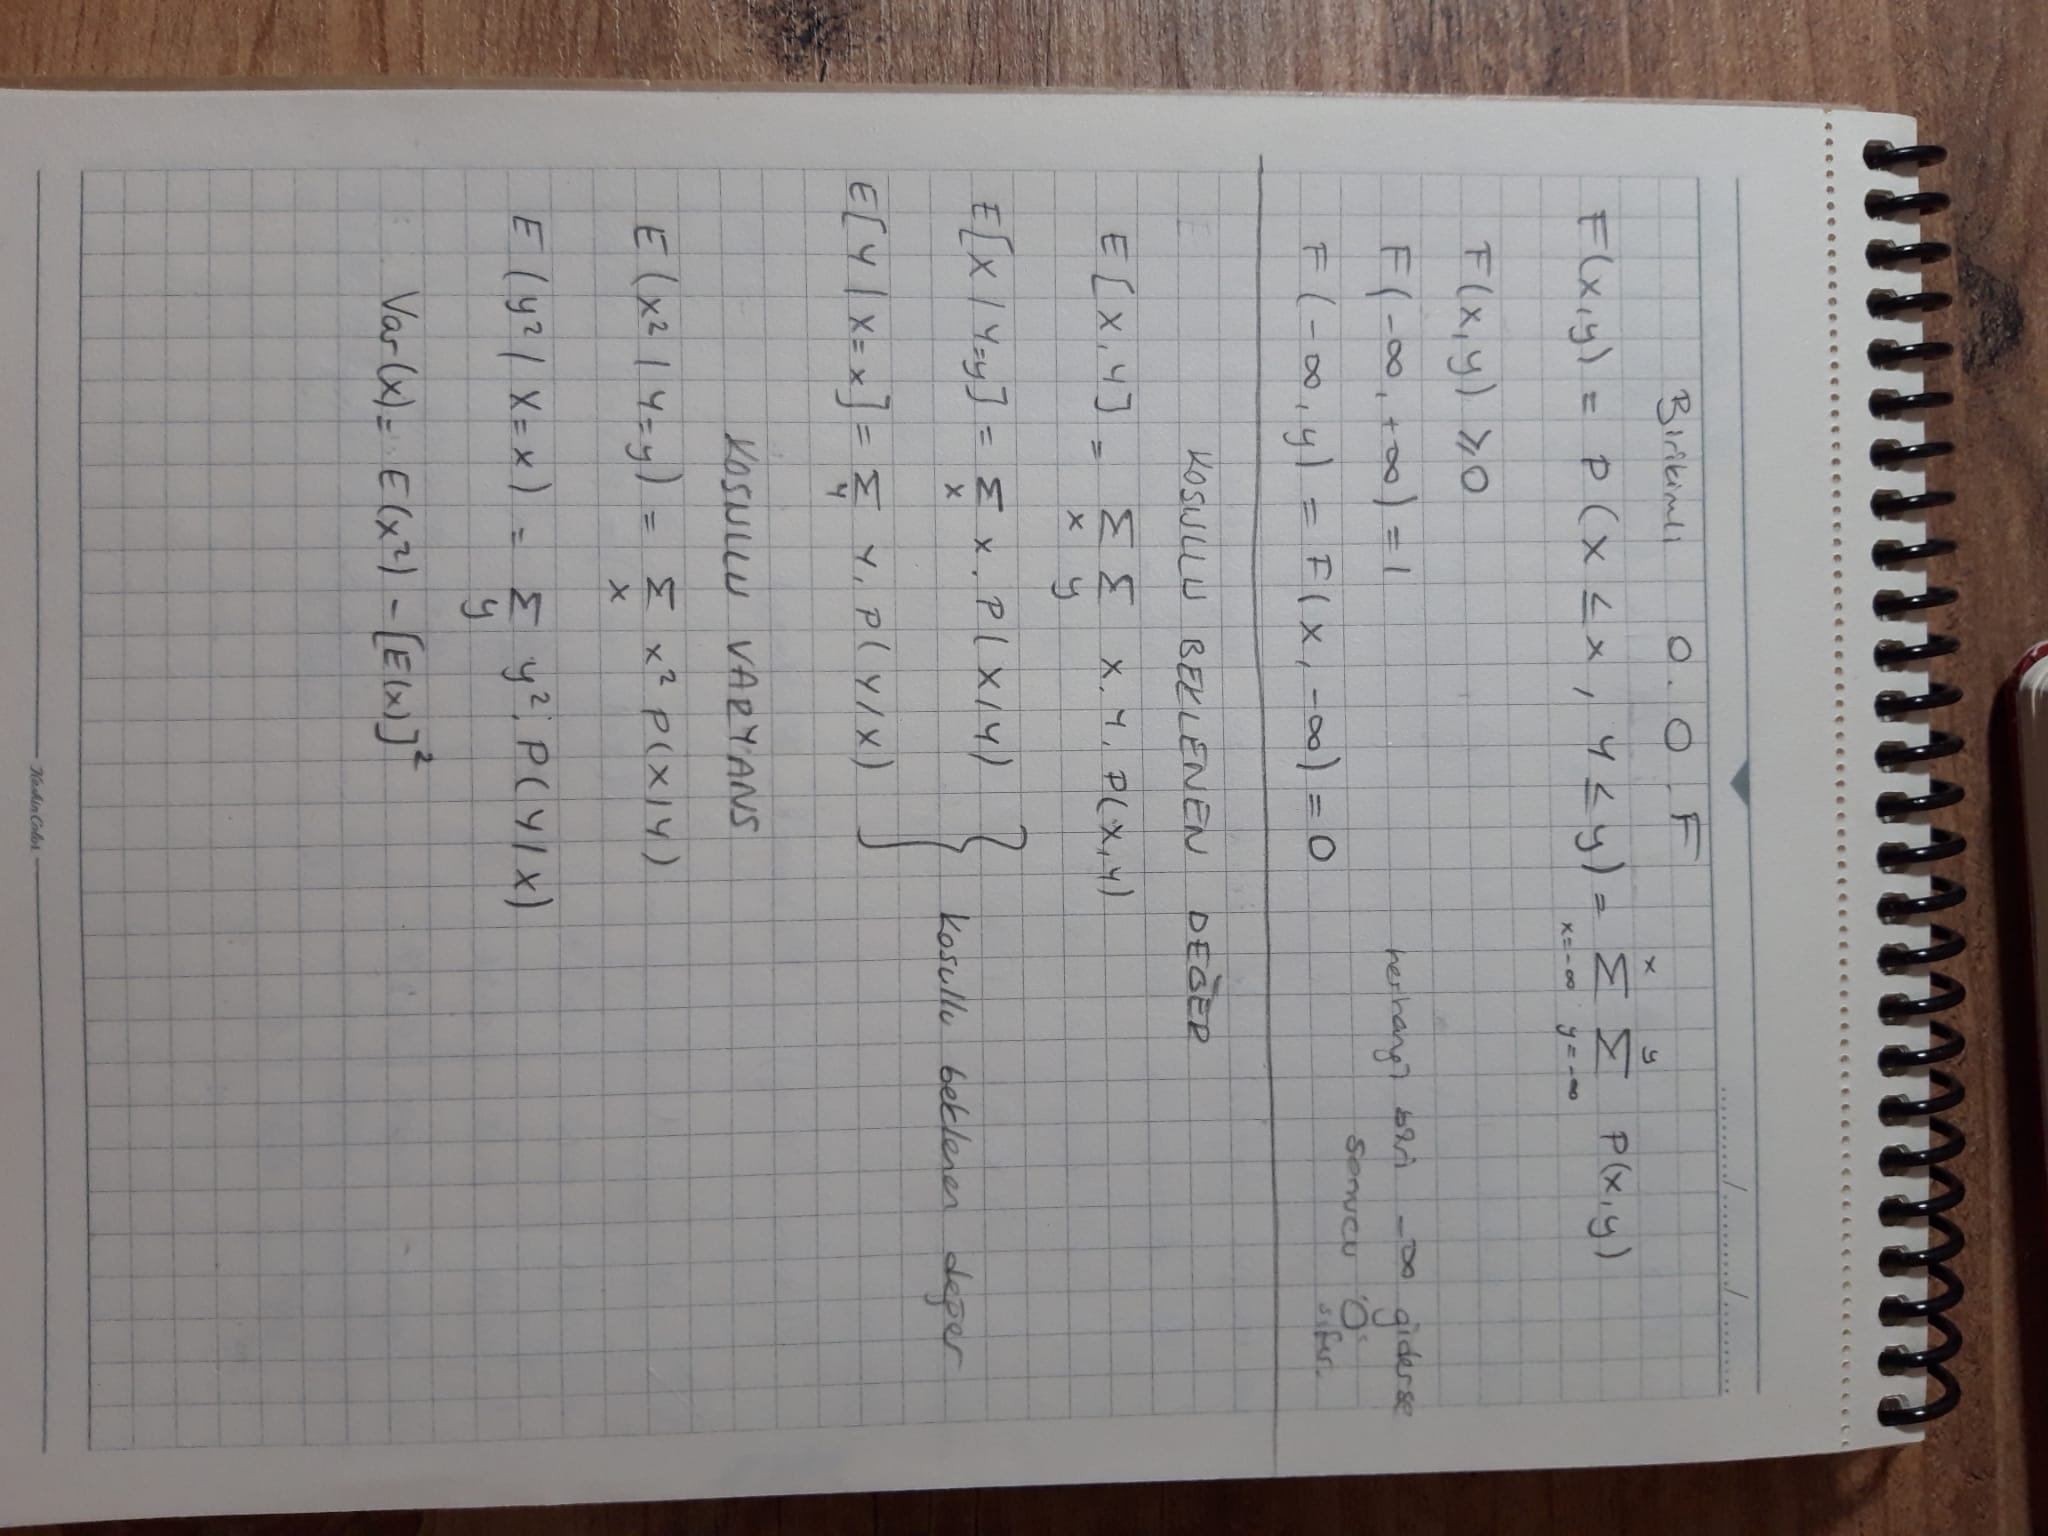 Birikimli O.O.F
F(x,y) = P(X ≤ x, Y ≤ y) = x∑x=-∞ y∑y=-∞ P(x,y)
F(x,y) ≥ 0
F(-∞,+∞) = 1
herhangi biri -∞ giderse
F(-∞,y) = F(x,-∞) = 0
sonucu "0"
sıfır.
KOSULLU BEKLENEN DEĞER
E[X,Y] = ∑x ∑y x.y.P(x,y)
E[X/Y=y] = ∑x x.P(X/Y)
Kosullu beklenen değer
E[Y/X=x] = ∑y Y.P(Y/X)
KOSULLU VARYANS
E(x²/Y=y) = ∑x x² P(X/Y)
E(y²/X=x) = ∑y y².P(Y/X)
Var(x) = E(x²) - [E(x)]²
KeskinColor